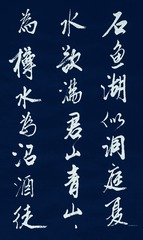 石鱼湖似洞庭夏
水欲满君山青山〻
为樽水为沼酒徒